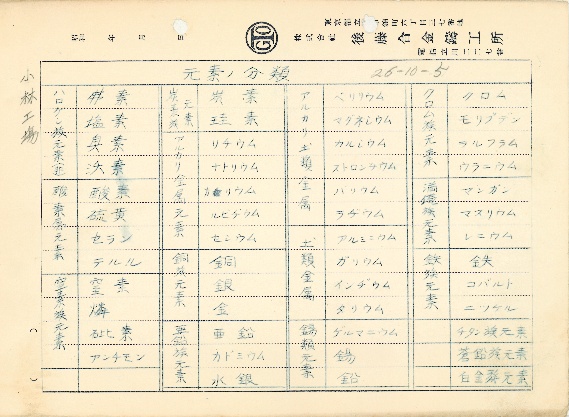 株式会社 後藤合金鋳工所
年 月 日
元素ノ分類 26-10-5
小林工場
ハロゲン族元素
弗素
塩素
臭素
沃素
酸素属元素
酸素
硫黄
セラン
テルル
窒素族元素
窒素
燐
砒素
アンチモン
炭素
珪素
アルカリ金属元素
リチウム
ナトリウム
カリウム
ルビヂウム
セシウム
銅族元素
銅
銀
金
亜鉛族元素
亜鉛
カドミウム
水銀
アルカリ土類金属
ベリリウム
マグネシウム
カルシウム
ストロンチウム
バリウム
ラヂウム
土類金属
アルミニウム
ガリウム
インヂウム
タリウム
錫族元素
ゲルマニウム
錫
鉛
クロム族元素
クロム
モリブデン
ウルフラム
ウラニウム
満俺族元素
マンガン
マスリウム
レニウム
鉄族元素
鉄
コバルト
ニッケル
チタン族元素
蒼鉛族元素
白金族元素